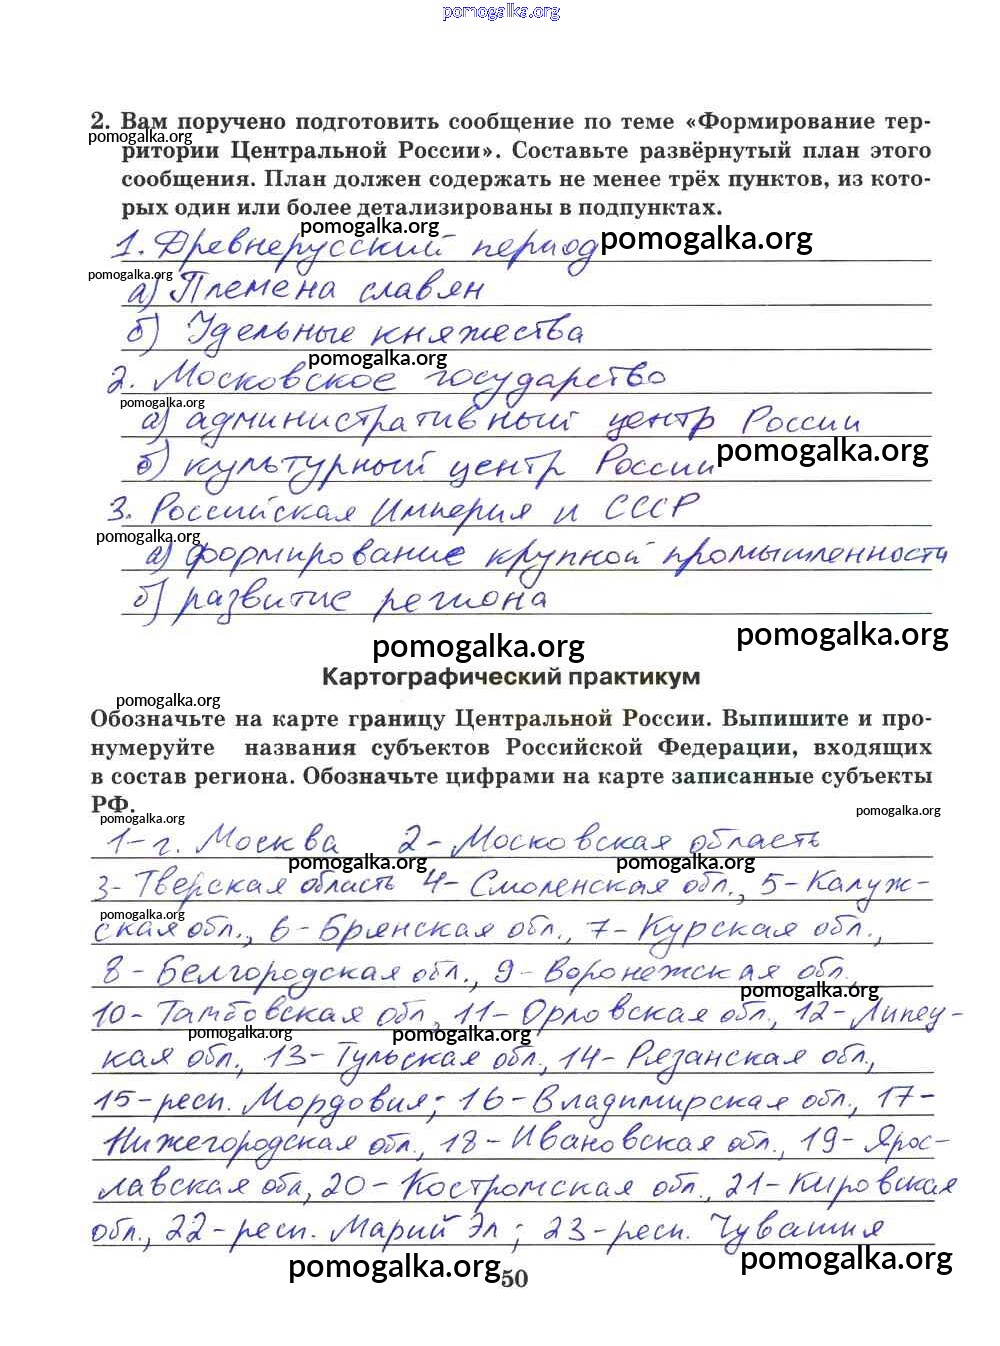 pomogalka.org
2. Вам поручено подготовить сообщение по теме «Формирование тер-
pomogalka.org
ритории Центральной России». Составьте развёрнутый план этого
сообщения. План должен содержать не менее трёх пунктов, из кото-
рых один или более детализированы в подпунктах.
pomogalka.org
1. Древнерусский период
pomogalka.org
pomogalka.org
а) Племена славян
б) Удельные княжества
pomogalka.org
2. Московское государство
pomogalka.org
а) административный центр России
pomogalka.org
б) культурный центр России
3. Российская Империя и СССР
pomogalka.org
а) формирование крупной промышленности
б) развитие региона
pomogalka.org
pomogalka.org
Картографический практикум
pomogalka.org
Обозначьте на карте границу Центральной России. Выпишите и про-
нумеруйте названия субъектов Российской Федерации, входящих
в состав региона. Обозначьте цифрами на карте записанные субъекты
РФ.
pomogalka.org
pomogalka.org
1-г. Москва 2-Московская область
pomogalka.org
pomogalka.org
3-Тверская область 4-Смоленская обл., 5-Калуж-
pomogalka.org
ская обл., 6-Брянская обл., 7-Курская обл.,
8-Белгородская обл., 9-Воронежская обл.
pomogalka.org
10-Тамбовская обл, 11-Орловская обл., 12-Липец-
pomogalka.org
pomogalka.org
кая обл., 13-Тульская обл., 14-Рязанская обл.,
15-респ. Мордовия; 16-Владимирская обл., 17-
Нижегородская обл., 18-Ивановская обл., 19-Ярос-
лавская обл, 20-Костромская обл., 21-Кировская
обл., 22-респ. Марий Эл; 23-респ. Чувашия
pomogalka.org
pomogalka.org
50